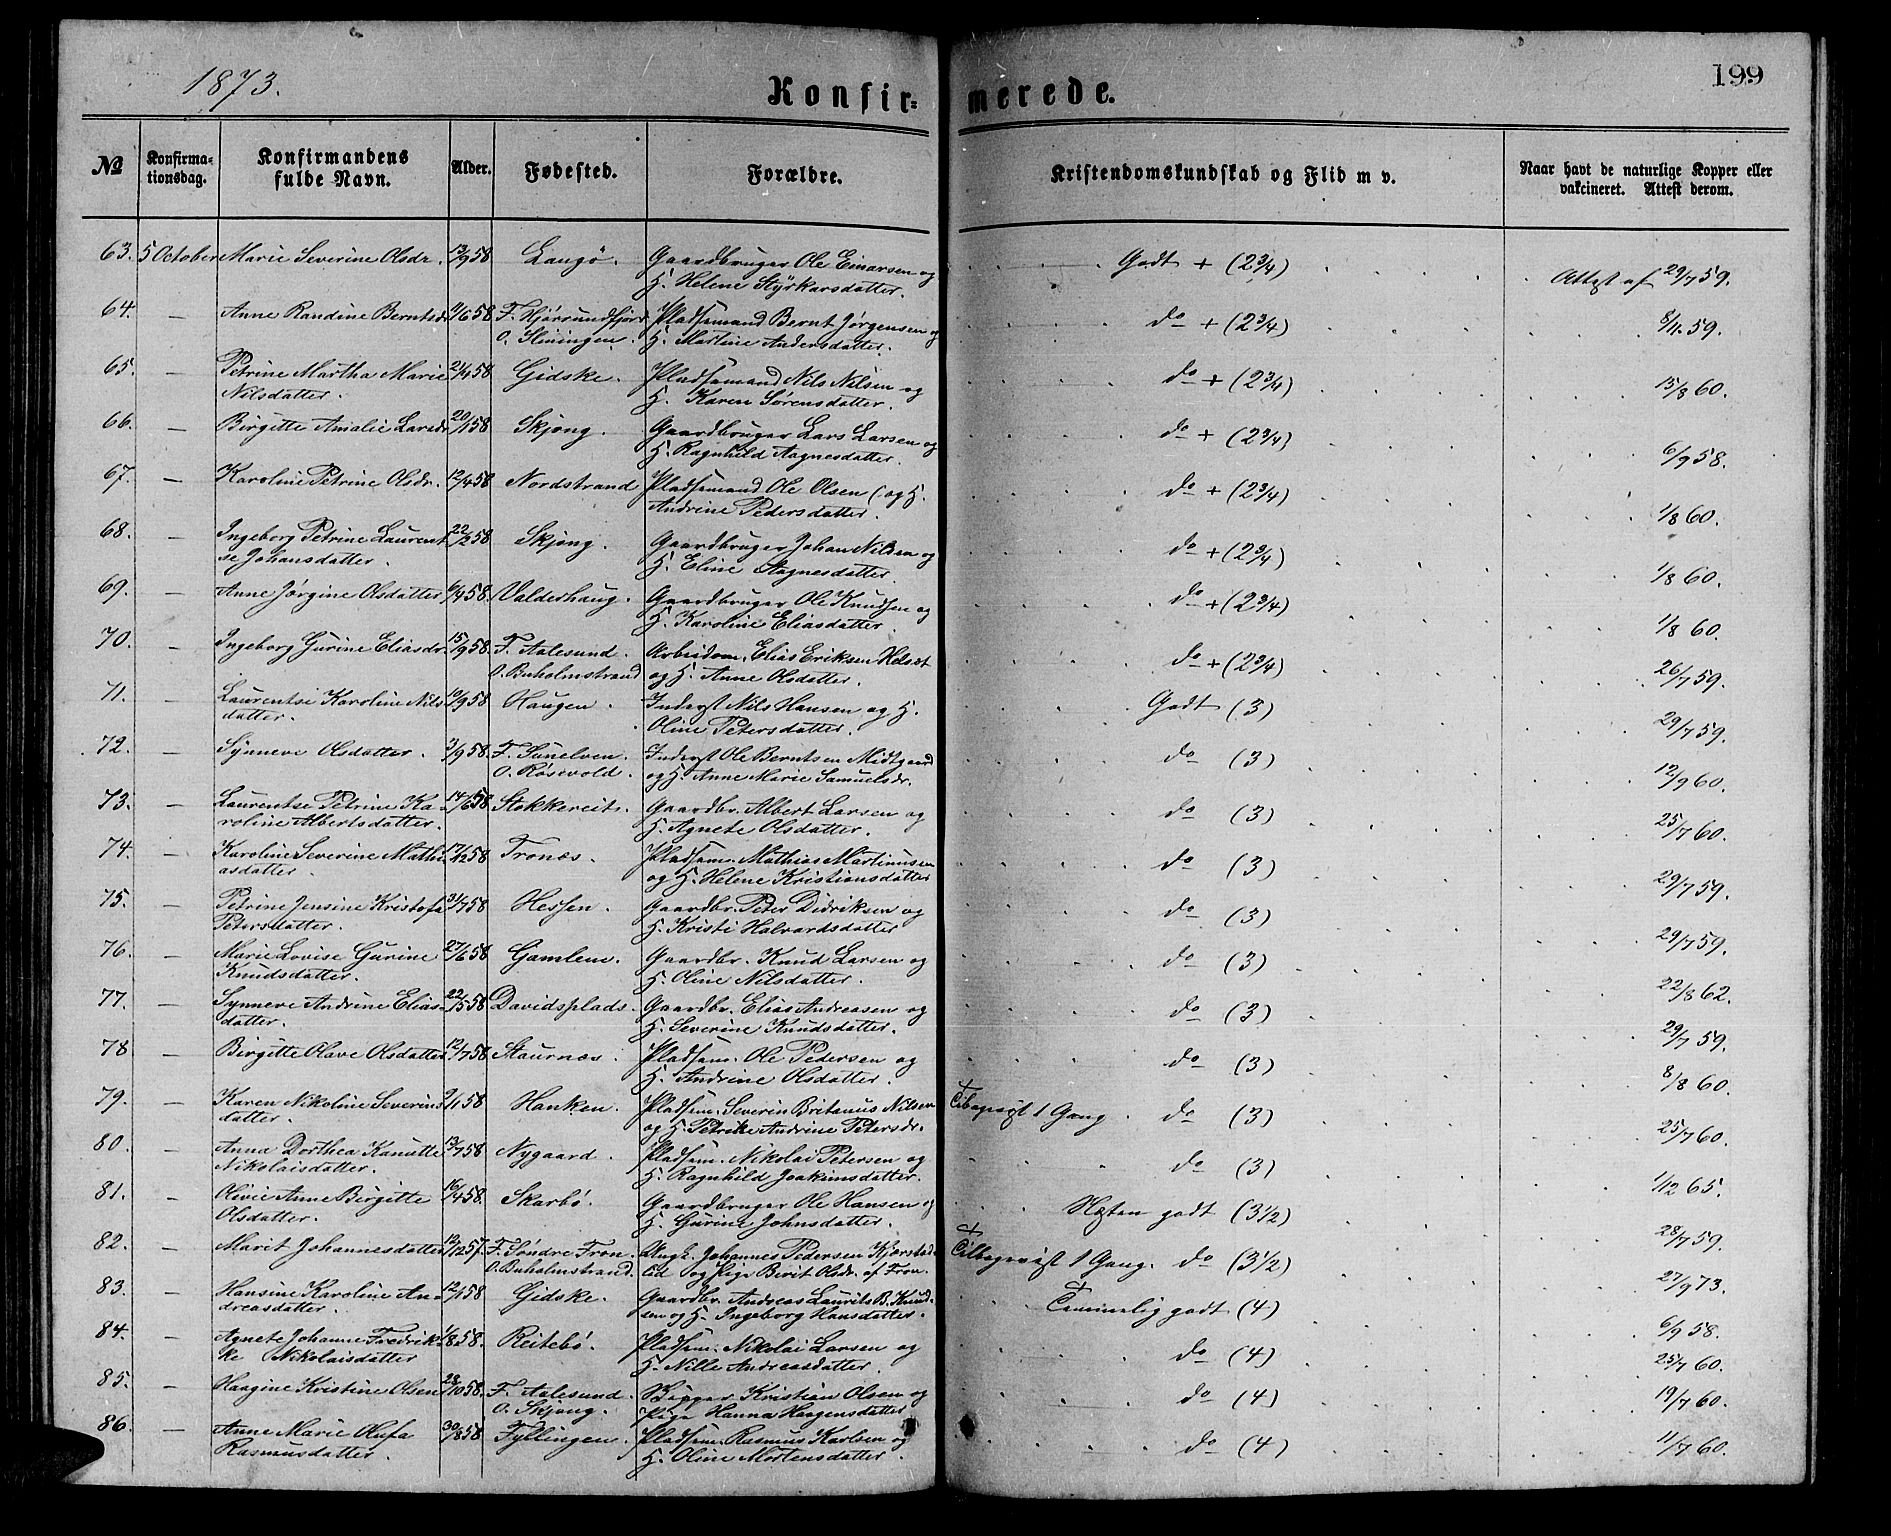 1873.
Konfir=
merede.
199
No
Konfirma=
tionsdag.
Konfirmandens
fulde Navn.
Alder.
Fødested.
Forældre.
Kristendomskundskab og Flid m v.
Naar havt de naturlige Kopper eller
vakcineret. Attest derom.
63. 5 October Marie Severine Olsdr. 13/9 58 Langö. Gaardbruger Ole Einarsen og Godt + (2 3/4) Attest af 29/7 59.
H. Helene Styrkarsdatter.
64. — Anne Randine Berntsdr 58. F. Hjørrundfjord Pladsemand Bernt Jørgensen og do + (2 3/4) 8/11 59.
O. H. Martine Andersdatter.
65. — Petrine Martha Marie 58 Gidske. Pladsemand Nils Nilsen og do + (2 3/4) 15/8 60.
Nilsdatter. H. Karen Sørensdatter.
66. — Birgitte Amalie Larsdr 20/1 58 Skjong. Gaardbruger Lars Larsen og do + (2 3/4) 6/9 58.
H. Ragnhild Aagnesdatter.
67. — Karoline Petrine Olsdr. 12/4 58 Nordstrand Pladsemand Ole Olsen (og H. do + (2 3/4) 1/8 60.
Andrine Pedersdatter.
68. — Ingeborg Petrine Laurent 22/2 58 Skjong. Gaardbruger Johan Nilsen og do + (2 3/4) 1/8 60.
se Johansdatter. H. Eline Aagnesdatter.
69. — Anne Jørgine Olsdatter 6/4 58. Valderhaug. Gaardbruger Ole Knudsen og do + (2 3/4) 1/8 60.
H. Karoline Eliasdatter.
70. — Ingeborg Gurine Eliasdr. 15/9 58. F. Aalesund. Arbeidsm. Elias Eriksen Helset do + (2 3/4) 26/7 59.
O. Buholmstrand og H. Anne Olsdatter.
71. — Laurentse Karoline Nils 10/9 58 Haugen. Inderst Nils Hansen og H. Godt (3) 29/7 59.
datter. Oline Petersdatter.
72. — Synneve Olsdatter. 3/9 58. F. Sunelven. Inderst Ole Berntsen Midtgaard do (3) 12/9 60.
O. Røsevold. og H. Anne Marie Samuelsdr.
73. — Laurentse Petrine Ka- 14/6 58. Stokkereit. Gaardbr. Albert Larsen og do (3) 25/7 60.
roline Albertsdatter. H. Agnete Olsdatter.
74. — Karoline Severine Mathi 17/12 58 Tronæs. Pladsem. Mathias Martinusen do (3) 29/7 59.
asdatter. og H. Helene Kristiansdatter
75. — Petrine Jensine Kristofa 31/7 58 Hessen. Gaardbr. Peter Didriksen og do (3) 29/7 59.
Petersdatter. H. Kristi Halvardsdatter
76. — Marie Lovise Gurine 27/6 58 Gamlem. Gaardbr. Knud Larsen og do (3) 22/8 62.
Knudsdatter. H. Oline Nilsdatter.
77. — Synneve Andrine Elias- 22/5 58 Davidsplads. Gaardbr. Elias Andreasen og do (3) 29/7 59.
datter. H. Severine Knudsdatter.
78 — Birgitte Olave Olsdatter 12/7 58 Staurnæs. Pladsem. Ole Pedersen og do (3) 8/8 60.
H. Andrine Olsdatter.
79. — Karen Nikoline Severins 58 Hanken. Pladsem. Severin Britanus Nilsen Tilbagevist 1 Gang. do (3) 25/7 60.
datter. og H. Petrike Andrine Petersdr.
80. — Anna Dorthea Kanutte 13/7 58 Nygaard. Pladsem. Nikolai Petersen og do (3) 1/12 65.
Nikolaisdatter. H. Ragnhild Joakimsdatter.
81. — Olivie Anne Birgitte 16/4 58. Skarbö. Gaardbruger Ole Hansen og Næsten godt (3 1/2) 28/7 59.
Olsdatter. H. Gurine Johnsdatter.
82. — Marit Johannesdatter 13/12 57. F. Søndre Fron. Ungk. Johannes Pedersen Kjørstad- Tilbagevist 1 Gang. do (3 1/2) 27/9 73.
O. Buholmstrand. Eid og Pige Berit Olsdr. af Fron.
83. — Hansine Karoline An- 12/1 58 Gidske. Gaardbr. Andreas Laurits B. Knud- Temmelig godt (4) 6/9 58.
dreasdatter. sen og H. Ingeborg Hansdatter.
84. — Agnete Johanne Fredrik- 1/8 58. Reitebö. Pladsem. Nikolai Larsen og do (4) 25/7 60.
ke Nikolaisdatter H. Nille Andreasdatter.
85. — Haagine Kristine Olsen 28/10 58. F. Aalesund. Kristian Olsen og do (4) 19/7 60.
O. Skjong. Pige Hanna Haagensdatter
86. — Anne Marie Olufa 30/8 58 Fyllingen. Pladsem. Rasmus Karlsen og do (4) 11/7 60.
Rasmusdatter. H. Oline Mortensdatter.